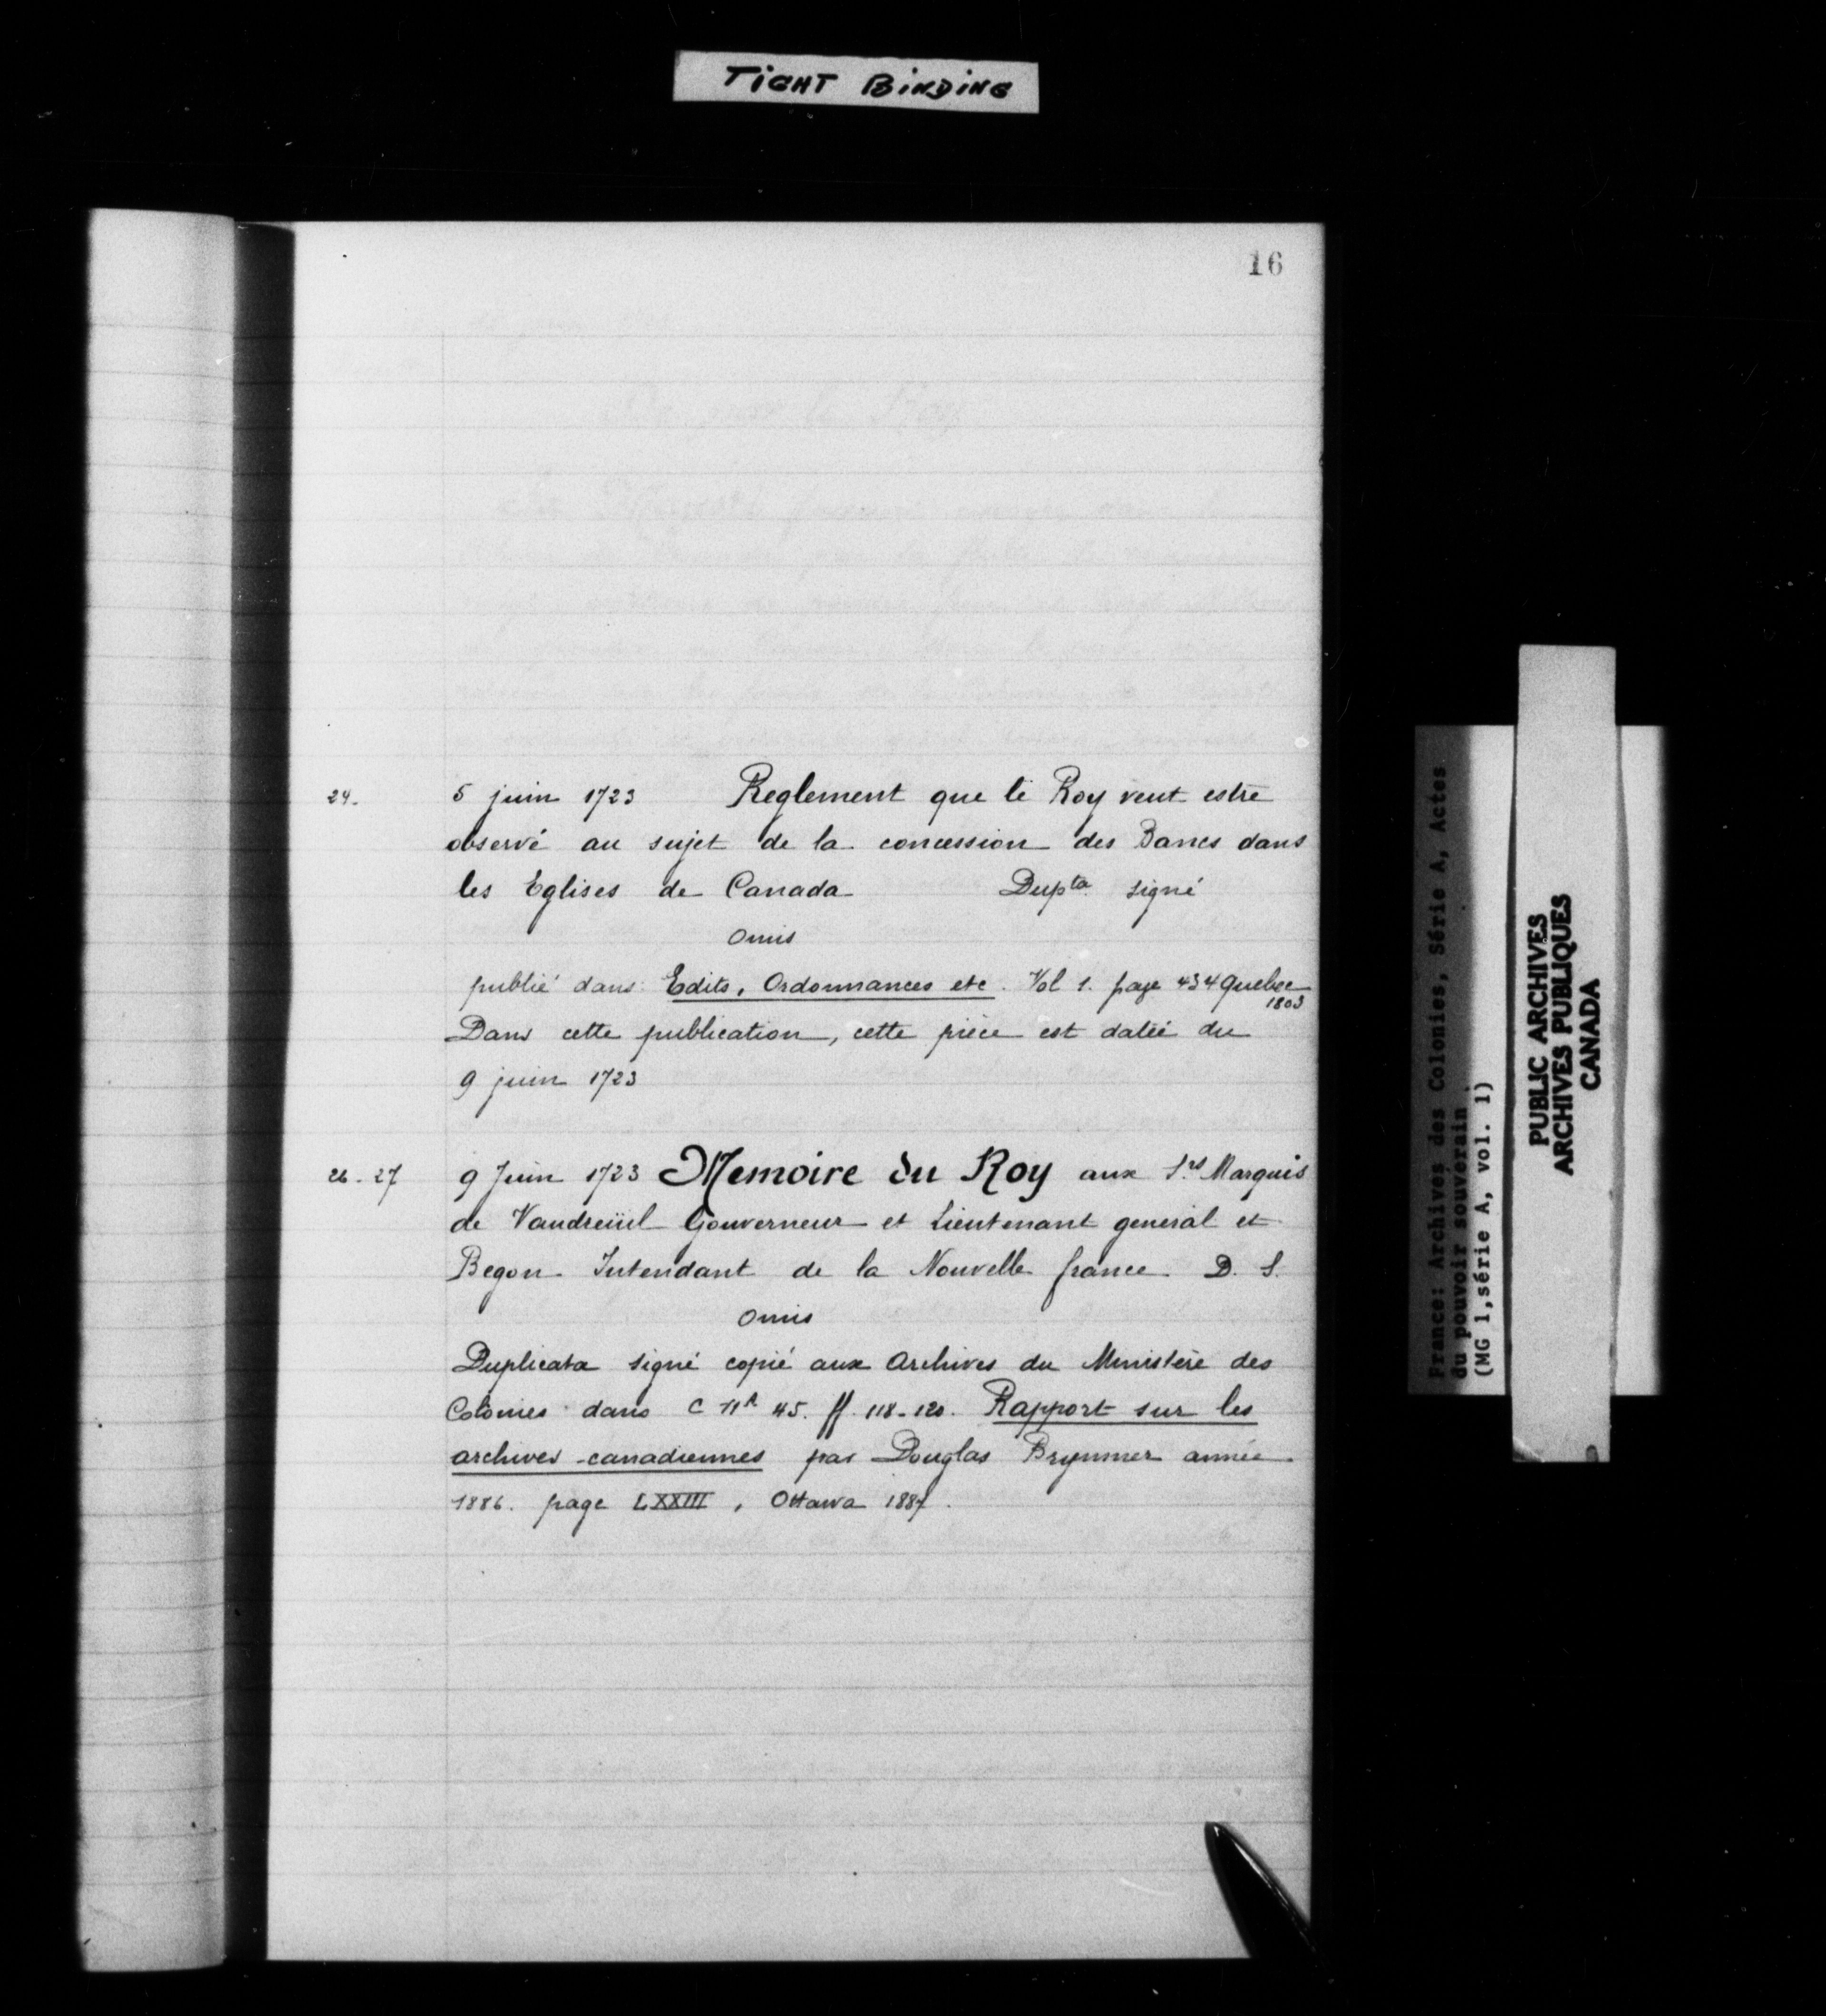 TIGHT BINDING
16
24. 5 juin 1723 Reglement que le Roy veut estre
observé au sujet de la concession des Bancs dans
les Eglises de Canada Dupta signé
omis
publié dans Edits, Ordonnances etc. Vol 1. page 434 Quebec
1803
Dans cette publication, cette pièce est datée du
9 juin 1723
26-27 9 Juin 1723 Memoire du Roy aux Srs Marquis
de Vaudreüil Gouverneur et Lieutenant general et
Begon Intendant de la Nouvelle france D. S.
omis
Duplicata signé copié aux Archives du Ministère des
Colonies dans C 11A 45. ff. 118-120. Rapport sur les
archives canadiennes par Douglas Brymner année
1886. page LXXIII, Ottawa 1887.
France: Archives des Colonies, Série A, Actes
du pouvoir souverain
(MG 1,série A, vol. 1)
PUBLIC ARCHIVES
ARCHIVES PUBLIQUES
CANADA